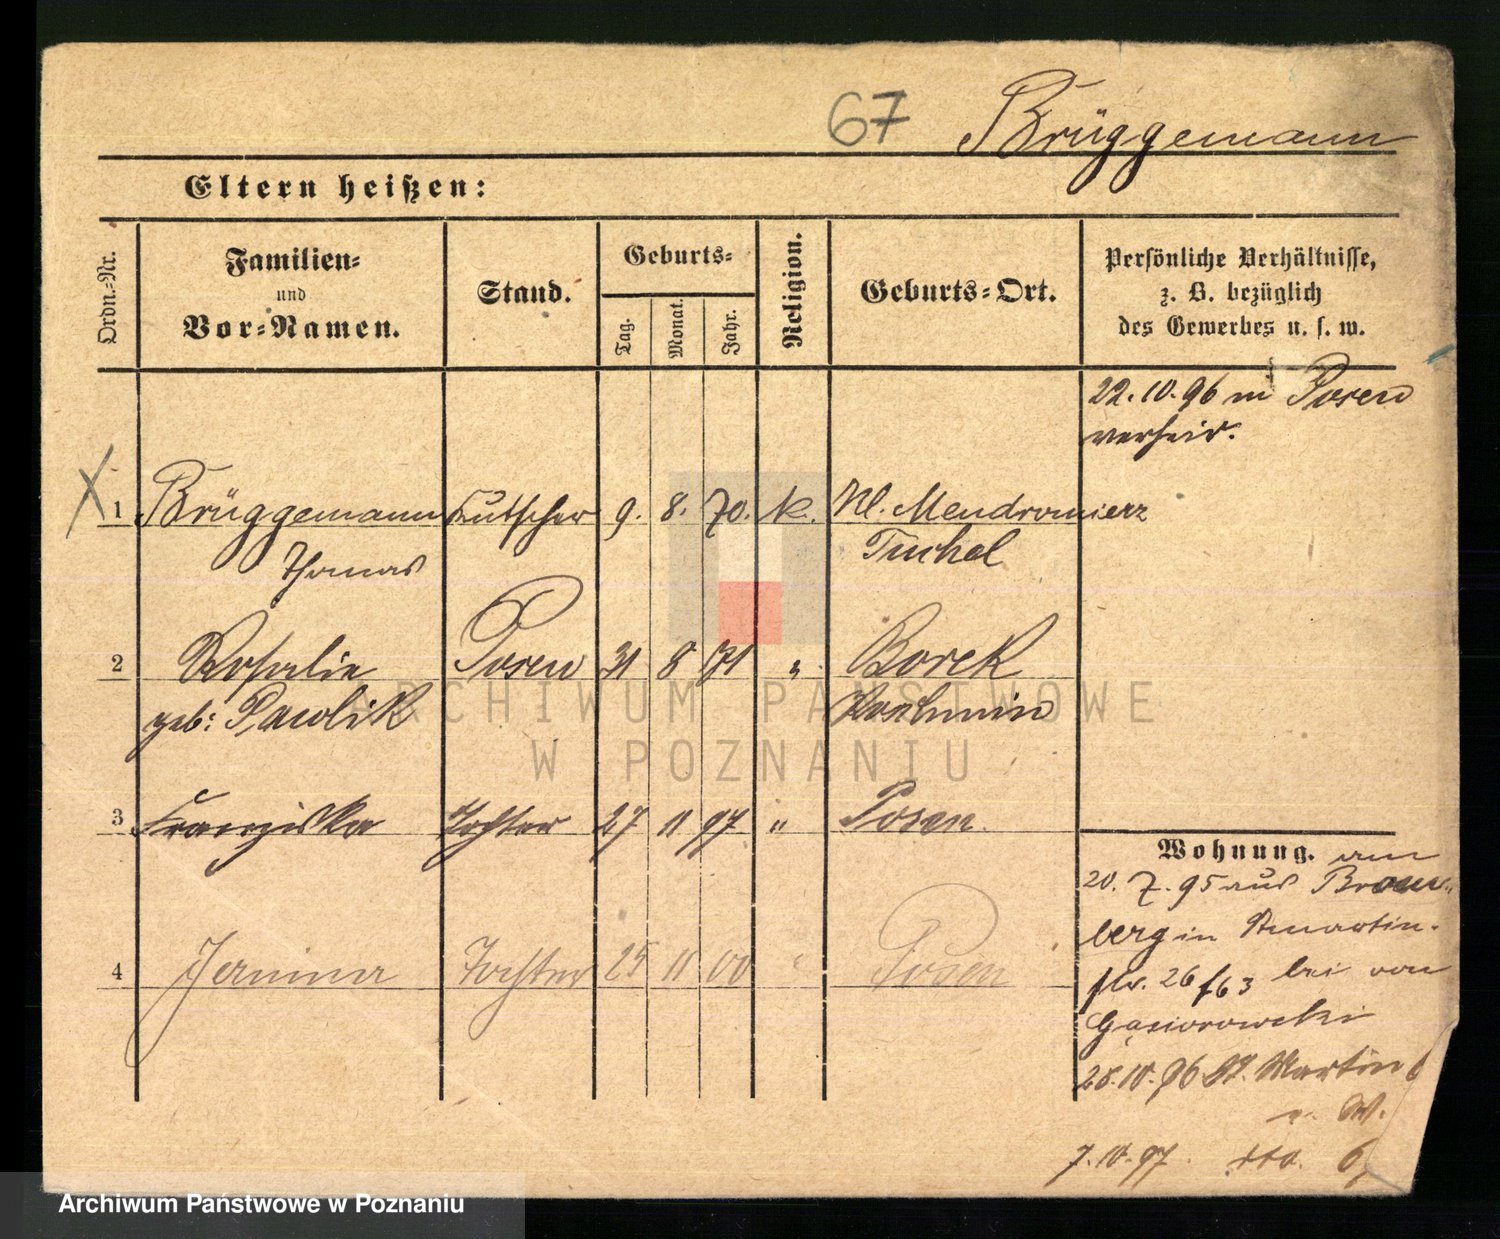 67 Brüggemann
Eltern heißen:
Ordn.-Nr.
Familien-
und
Vor-Namen.
Stand.
Geburts-
Tag.
Monat.
Jahr.
Religion.
Geburts-Ort.
Persönliche Verhältnisse,
z. B. bezüglich
des Gewerbes u. s. w.
22.10.96 in Posen
verheir.
1 Brüggemann Kutscher 9. 8. 70. k. Kl. Mendromierz
Thomas Tuchel
2 Rosalie Posen 31 8 71 " Borek
geb: Pawlik Koschmin
3 Franziska Tochter 27 11 97 " Posen
4 Janina Tochter 25 11 00 " Posen
Wohnung. am
20. 7. 95 aus Brom-
berg in St martin-
str. 26 bei von
Gąsiorowski
28.10.96 St. Martin 6
W.
7.10.97. dto. 6
ARCHIWUM PAŃSTWOWE
W POZNANIU
Archiwum Państwowe w Poznaniu